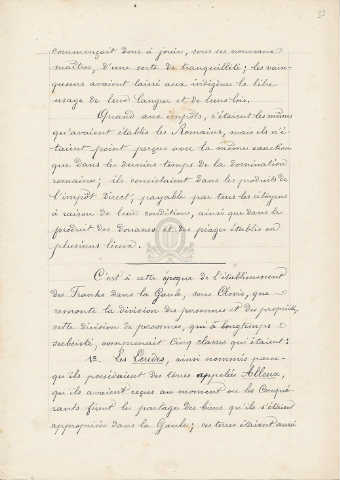 commençait donc à jouir, sous ses nouveaux
maîtres, d'une sorte de tranquillité; les vain-
queurs avaient laissé aux indigènes le libre
usage de leurs langue et de leurs lois.
Quand aux impôts, c'étaient les mêmes
qu'avaient établis les Romains, mais ils n'é-
taient point perçus avec la même exaction
que dans les derniers temps de la domination
romaine; ils consistaient dans les produits de
l'impôt direct, payable par tous les citoyens
à raison de leur condition, ainsi que dans le
produit des douanes et des péages établis en
plusieurs lieux.
C'est à cette époque de l'établissement
des Franks dans la Gaule, sous Clovis, que
remonte la division des personnes et des propriétés,
cette division de personnes, qui a longtemps
subsisté, comprenait cinq classes qui étaient:
1º Les Leudes, ainsi nommés parce-
qu'ils possédaient des terres appelées Alleux,
qu'ils avaient reçues au moment où les Conqué-
rants firent le partage des biens qu'ils s'étaient
appropriées dans la Gaule; ces terres étaient aussi